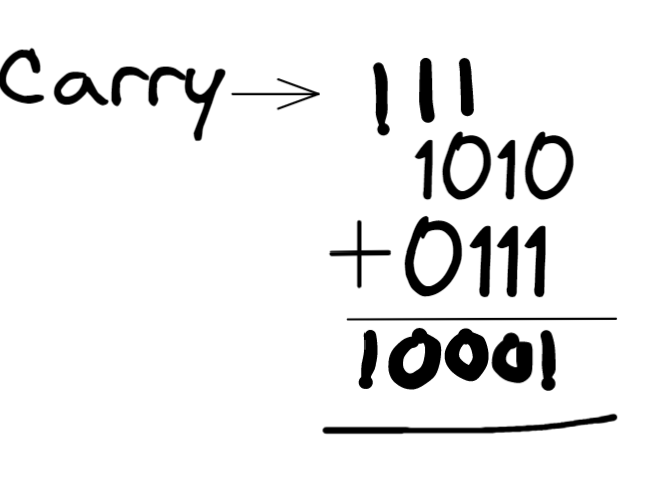 Carry → 111
1010
+ 0111
10001